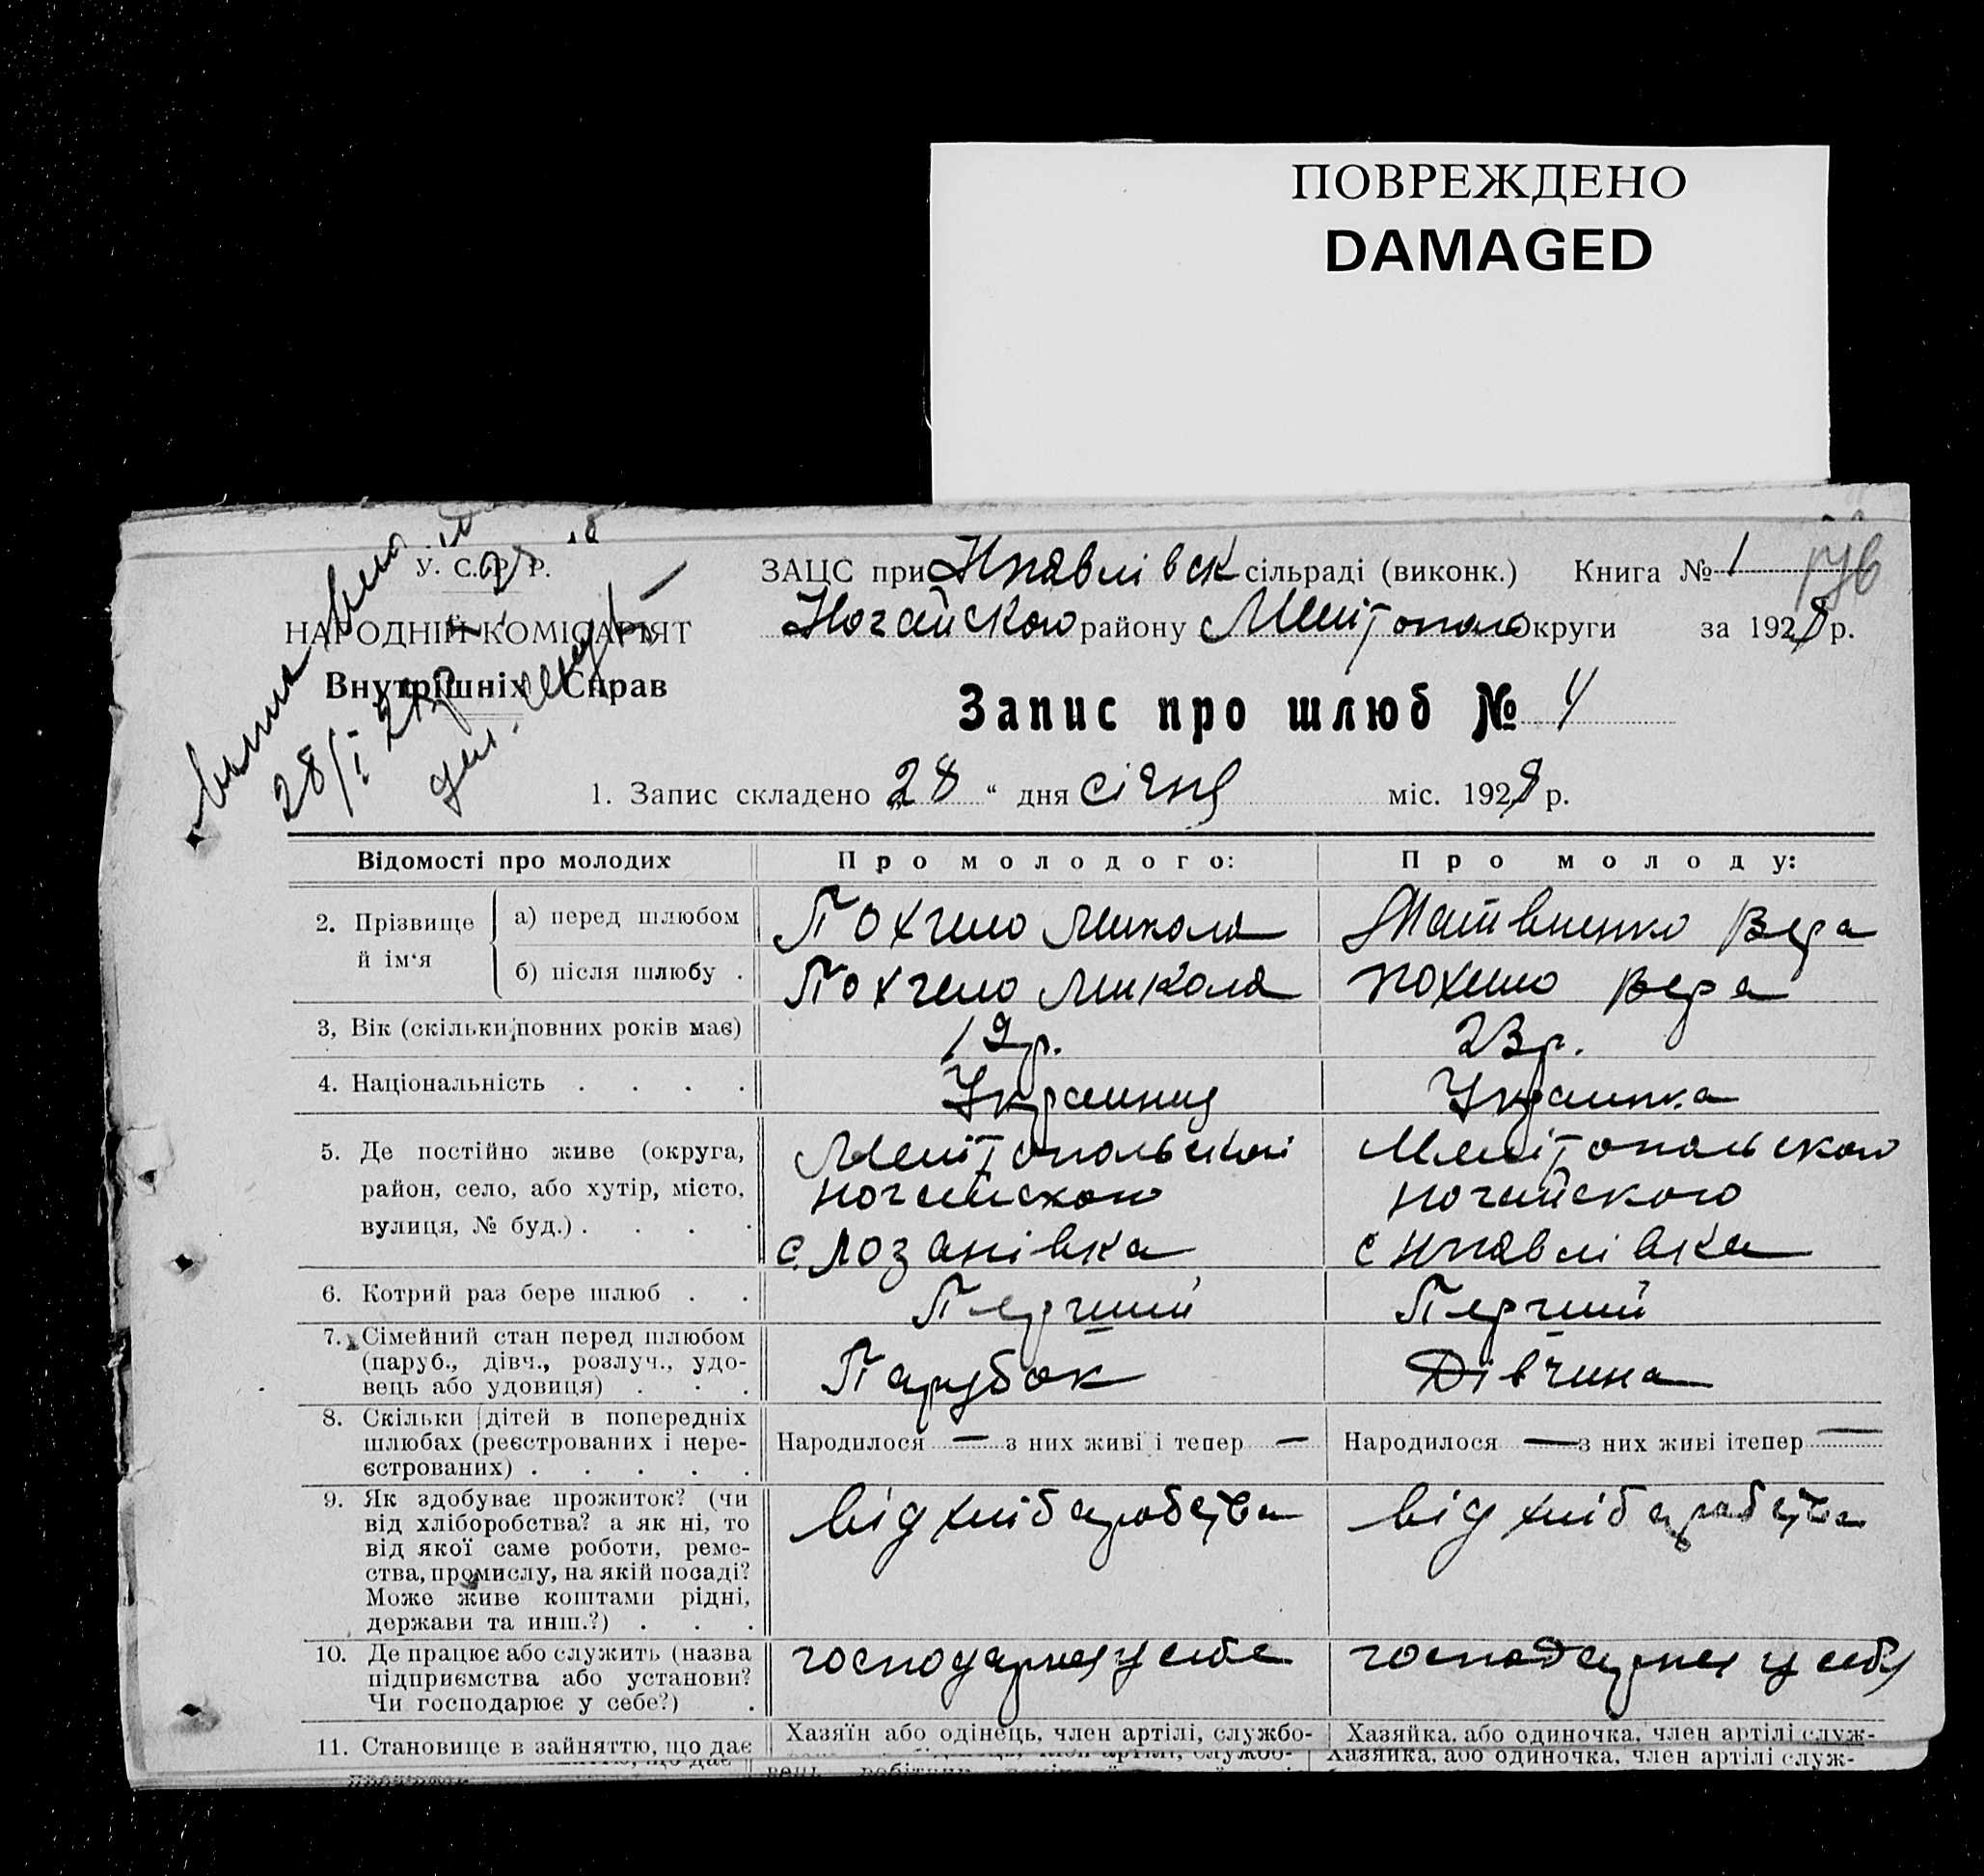 ПОВРЕЖДЕНО
DAMAGED
У. С. Р. Р.
НАРОДНІЙ КОМІСАРІЯТ
Внутрішніх Справ
28/I 28р
ЗАЦС при Нпавлівск сільраді (виконк.) Книга № 1
Ногайского району Меліт округи за 1928 р.
Запис про шлюб № 4
1. Запис складено „28“ дня січня міс. 1928 р.
Відомості про молодих Про молодого: Про молоду:
2. Прізвище й ім‘я
а) перед шлюбом Похчело Микола Матвиенко Вера
б) після шлюбу . Похчело Микола похило Вера
3, Вік (скільки повних років має) 19р. 23р.
4. Національність . . . . Украинец Украинка
5. Де постійно живе (округа, район, село, або хутір, місто, вулиця, № буд.) . . . .
Мелітопольскоі Мелітопольского
ногайского ногайского
с. Лозанівка с Нпавлівка
6. Котрий раз бере шлюб . . Перчий Перчий
7. Сімейний стан перед шлюбом
(паруб., дівч., розлуч., удо-
вець або удовиця) . . . Парубок Дівчина
8. Скільки дітей в попередніх
шлюбах (реєстрованих і нере-
єстрованих) . . . . . Народилося — з них живі і тепер — Народилося — з них живі ітепер —
9. Як здобуває прожиток? (чи
від хліборобства? а як ні, то
від якої саме роботи, реме-
ства, промислу, на якій посаді?
Може живе коштами рідні,
держави та инш.?) . . .
від хліборобства від хліборобства
10. Де працює або служить (назва
підприємства або установи?
Чи господарює у себе?) .
господарює у себе господарює у себе
11. Становище в зайняттю, що дає Хазяїн або одінець, член артілі, службо- Хазяйка, або одиночка, член артілі служ-
Хазяйка, або одиночка, член артілі служ-